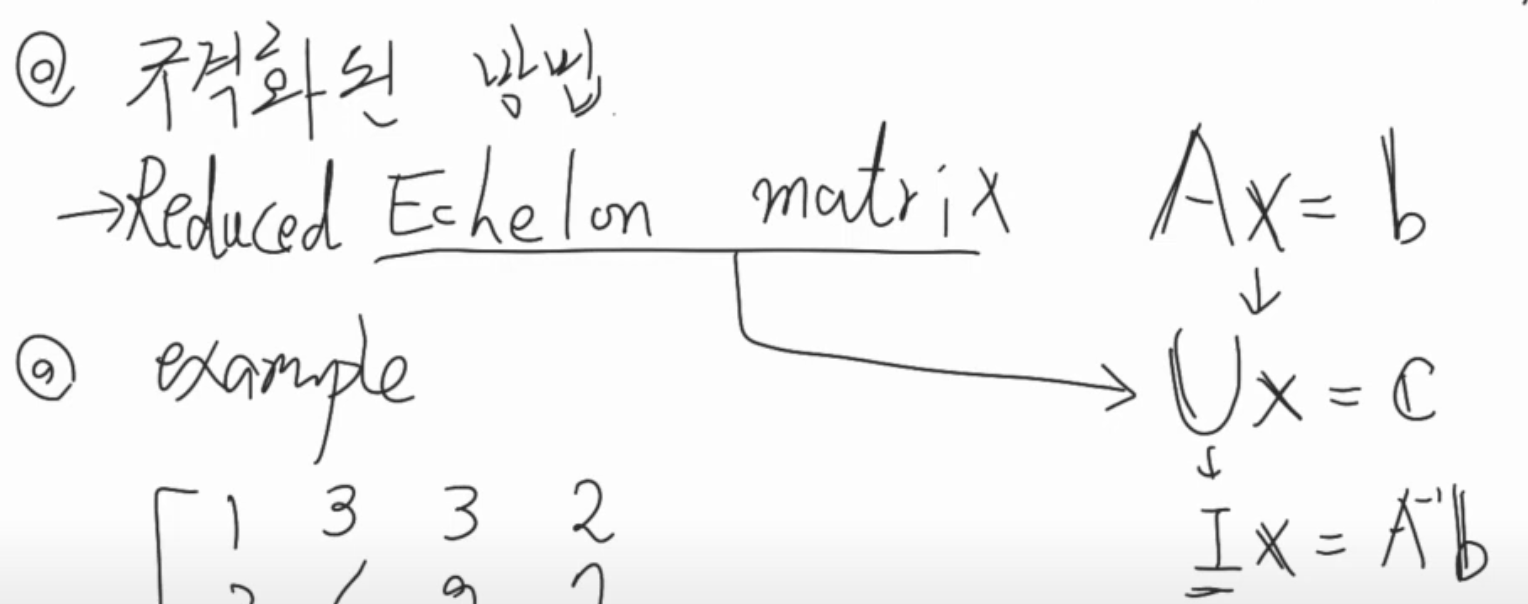 @ 규격화된 방법
→ Reduced Echelon matrix
Ax = b
↓
Ux = c
↓
Ix = A⁻¹b
@ example
1 3 3 2